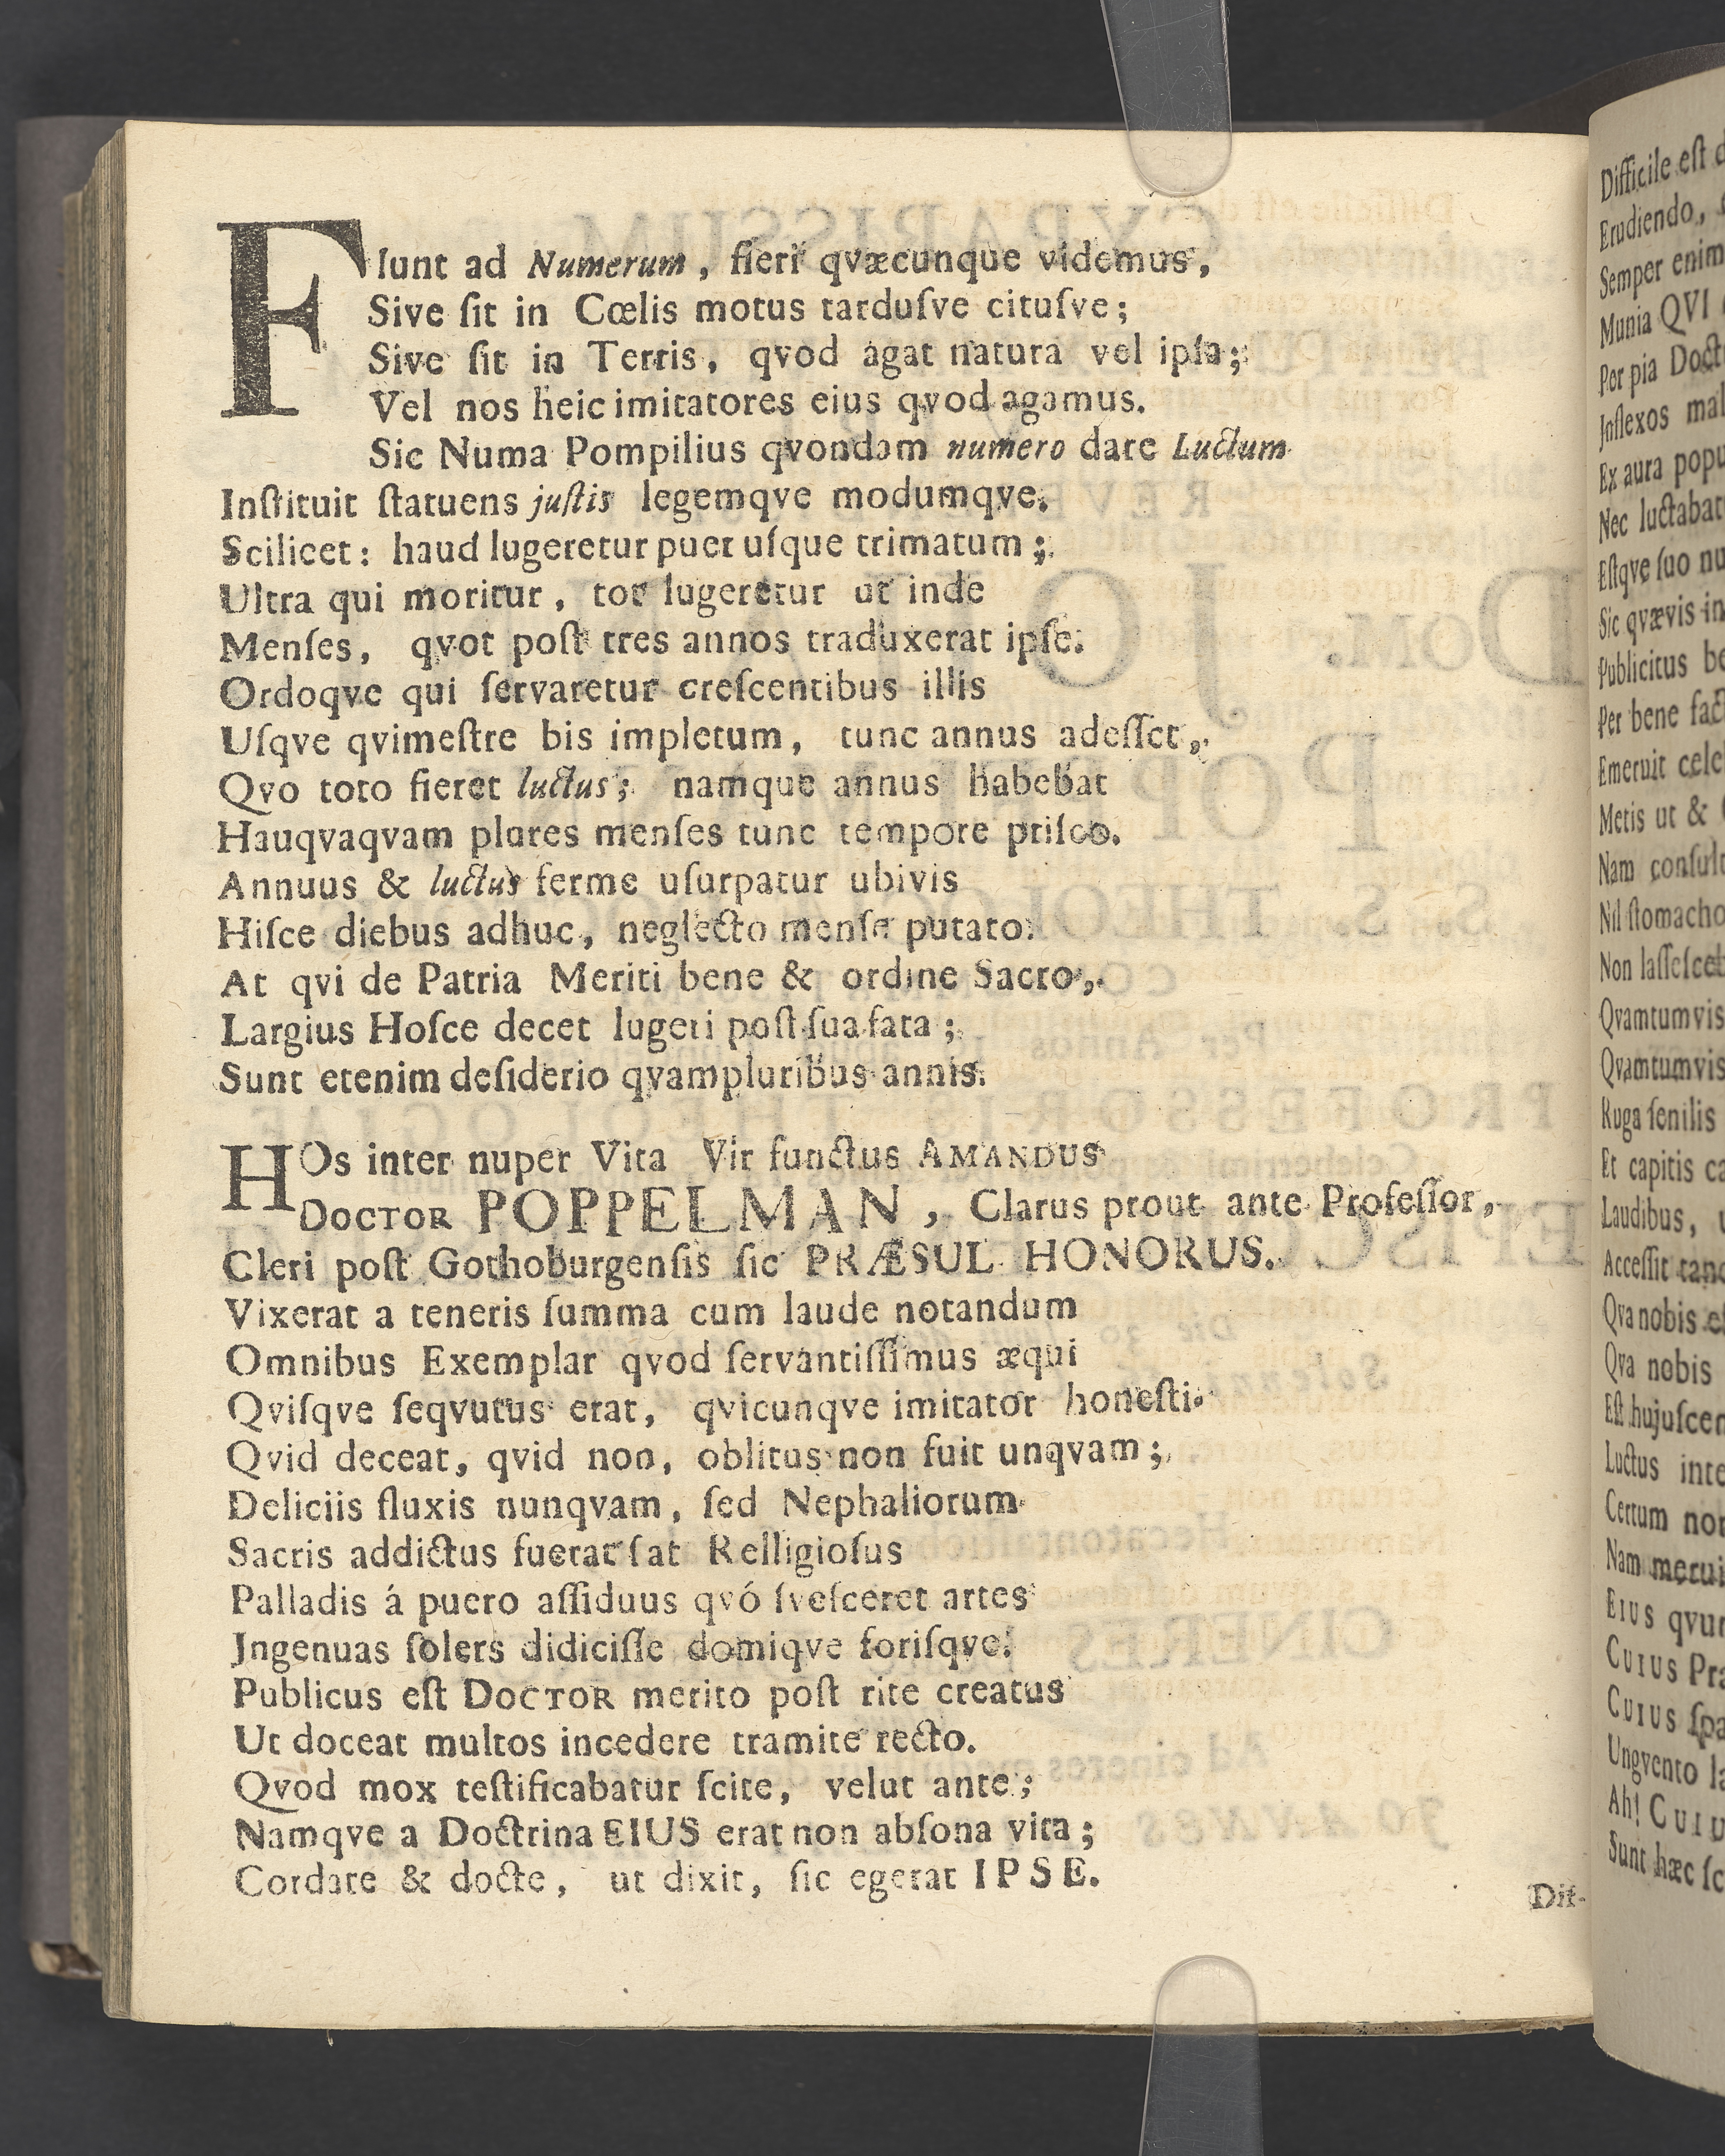 FIunt ad Numerum, fieri qvæcunque videmus,
Sive ſit in Cœlis motus tarduſve cituſve;
Sive ſit in Terris, qvod agat natura vel ipſa;
Vel nos heic imitatores eius qvod agamus.
Sic Numa Pompilius qvondam numero dare Luctum
Inſtituit ſtatuens juſtis legemqve modumqve.
Scilicet: haud lugeretur puer uſque trimatum;
Ultra qui moritur, tot lugeretur ut inde
Menſes, qvot poſt tres annos traduxerat ipſe.
Ordoqve qui ſervaretur creſcentibus illis
Uſqve qvimeſtre bis impletum, tunc annus adeſſet,
Qvo toto fieret luctus; namque annus habebat
Hauqvaqvam plures menſes tunc tempore priſco.
Annuus & luctus ferme uſurpatur ubivis
Hiſce diebus adhuc, neglecto menſe putato.
At qvi de Patria Meriti bene & ordine Sacro,
Largius Hoſce decet lugeri poſt ſua fata;
Sunt etenim deſiderio qvampluribus annis.
HOs inter nuper Vita Vir functus AMANDUS
DOCTOR POPPELMAN, Clarus prout ante Profeſſor,
Cleri poſt Gothoburgenſis ſic PRÆSUL HONORUS.
Vixerat a teneris ſumma cum laude notandum
Omnibus Exemplar qvod ſervantiſſimus æqui
Qviſqve ſeqvutus erat, qvicunqve imitator honeſti.
Qvid deceat, qvid non, oblitus non fuit unqvam;
Deliciis fluxis nunqvam, ſed Nephaliorum
Sacris addictus fuerat ſat Relligioſus
Palladis á puero aſſiduus qvó ſveſceret artes
Jngenuas ſolers didiciſſe domiqve foriſqve.
Publicus eſt DOCTOR merito poſt rite creatus
Ut doceat multos incedere tramite recto.
Qvod mox teſtificabatur ſcite, velut ante;
Namqve a Doctrina EIUS erat non abſona vita;
Cordate & docte, ut dixit, ſic egerat IPSE.
Dif-
Difficile eſt
Erudiendo,
Semper enim
Munia QVI
Per pia
Jnflexos
Ex aura
Nec
Eſtqve ſuo
Sic qvævis in
Publicitus
Per bene
Emeruit
Metis ut &
Nam
Nil
Non
Qvamtumvis
Qvamtumvis
Ruga ſenilis
Et capitis
Laudibus,
Acceſſit
Qva nobis
Qva nobis
Eſt
Luctus
Certum
Nam
EIUS
CUIUS
CUIUS
Ungvento
Ah!
Sunt hæc